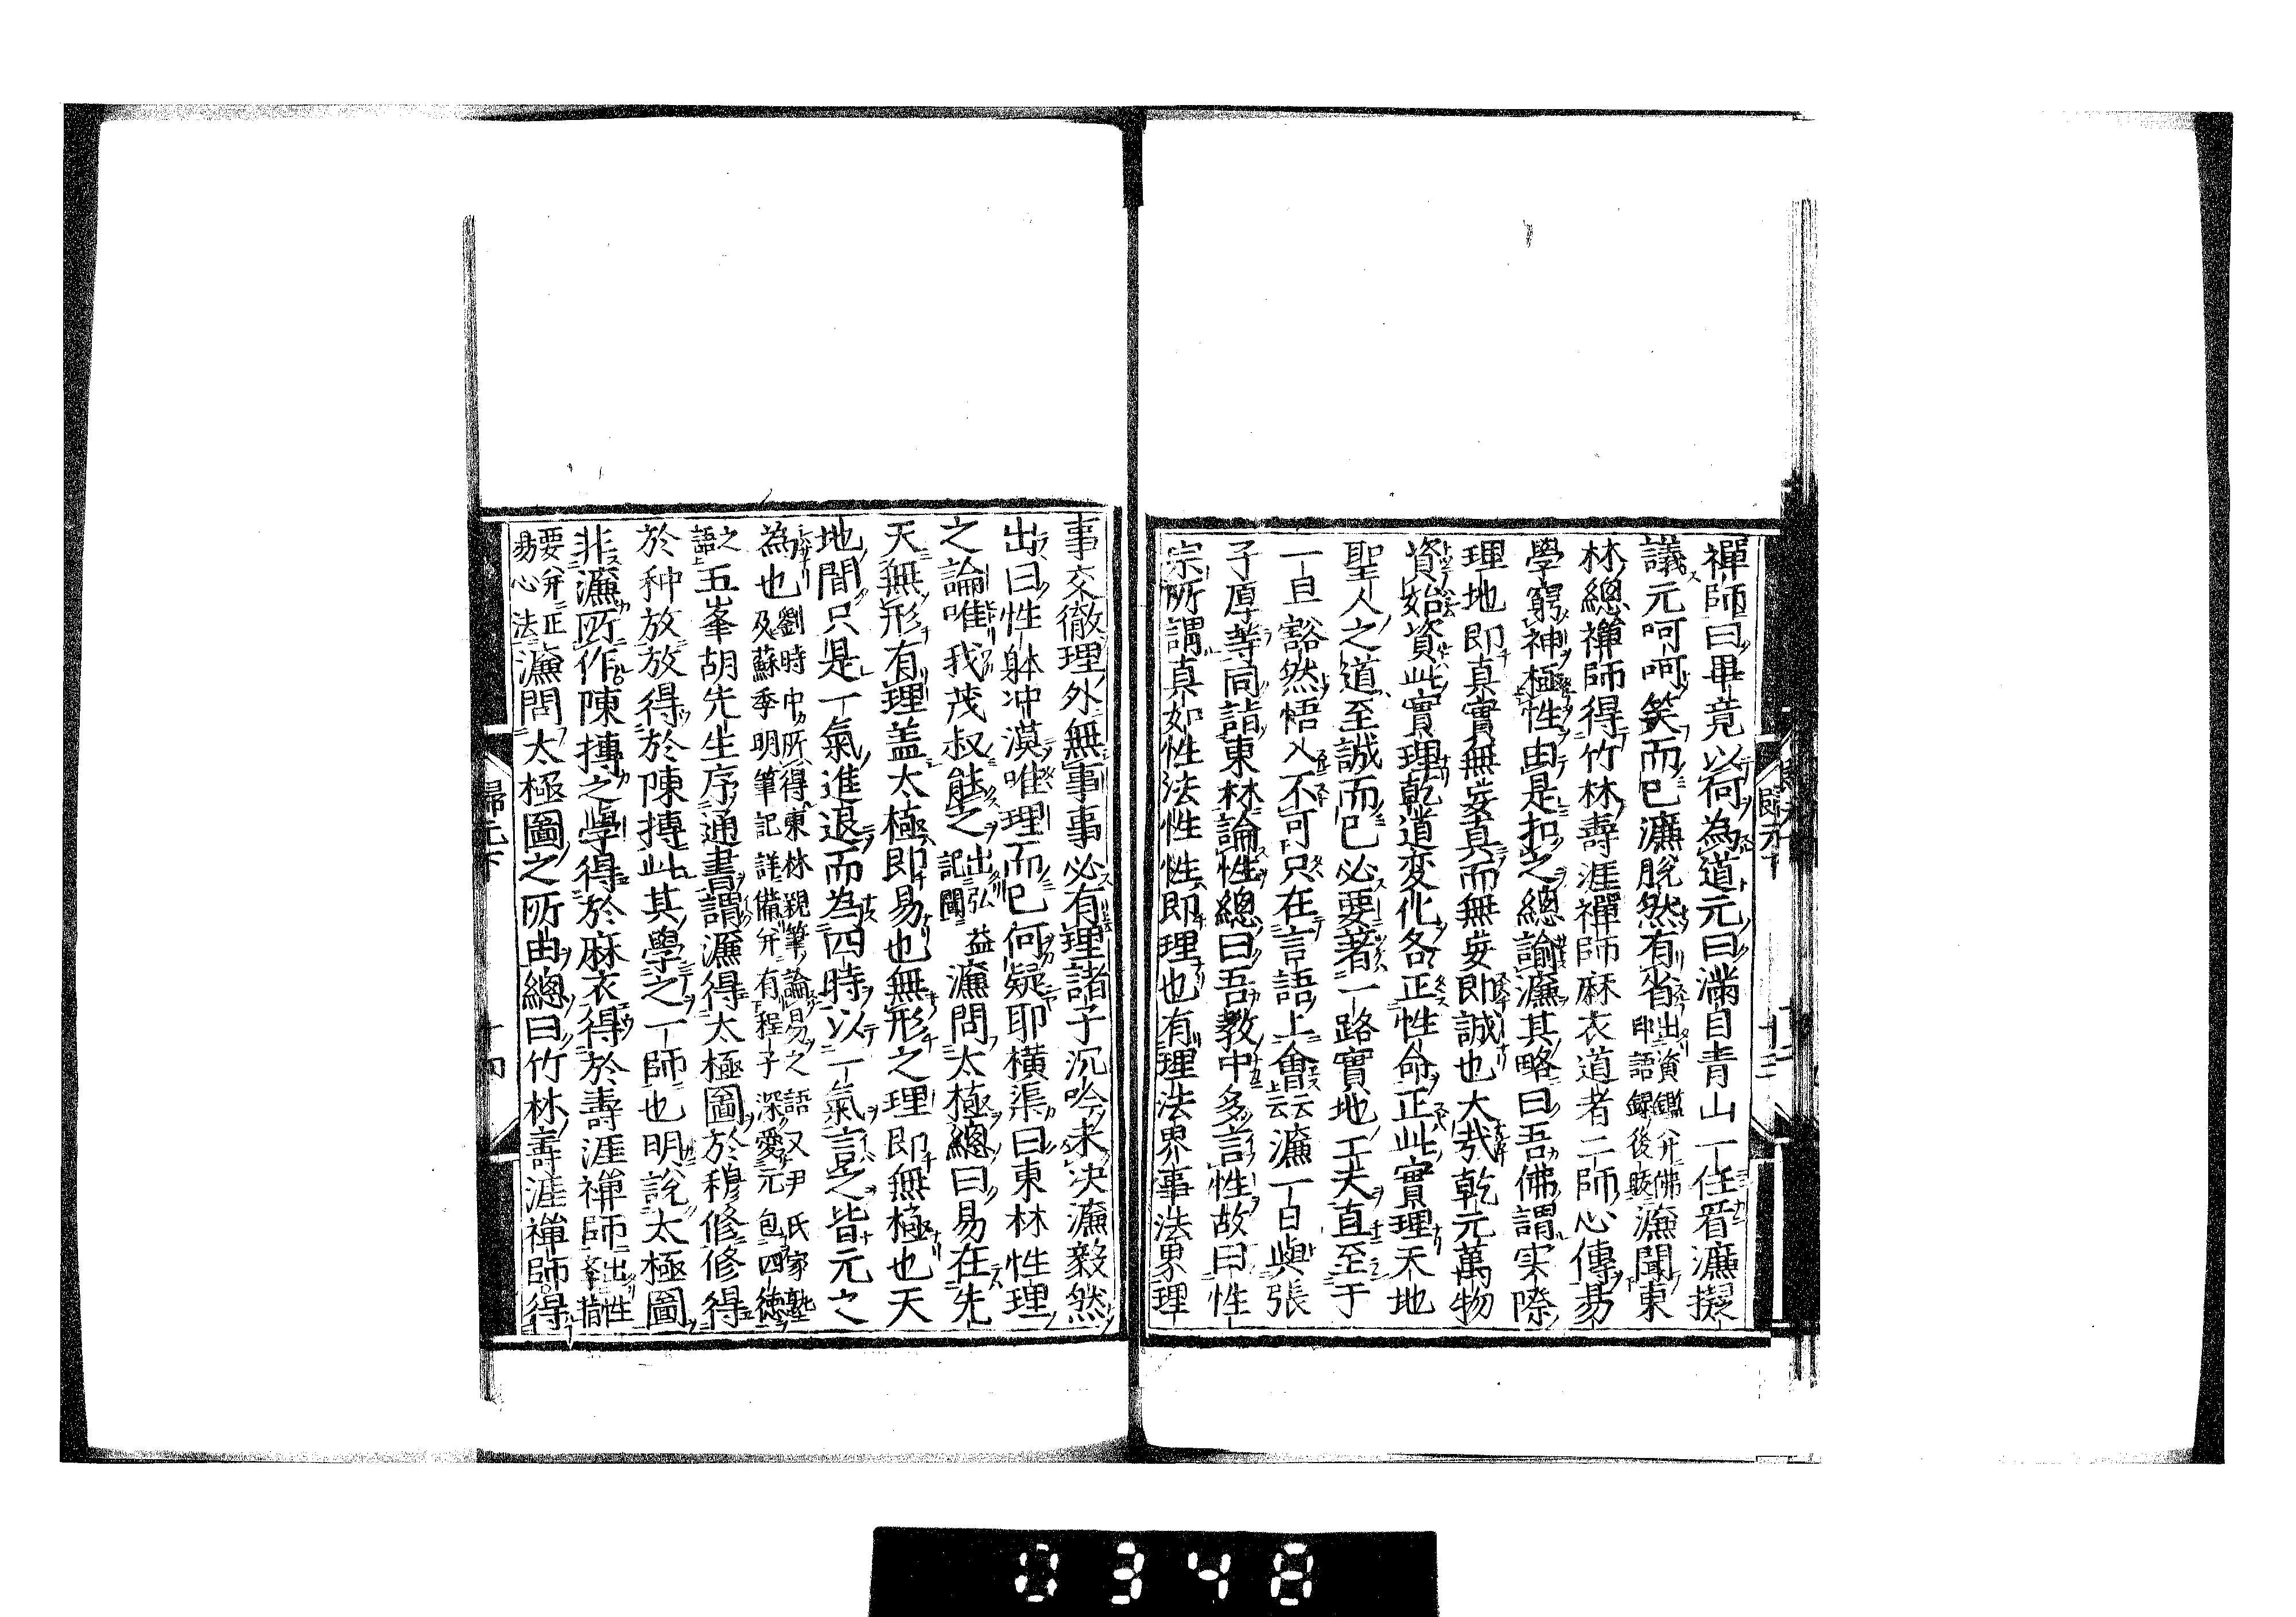 禪師曰畢竟以何為道元曰滿目青山一任看濂擬
議元呵呵笑而已濂脫然有省出資鑑并佛印語錄後跋濂聞東
林總禪師得竹林壽涯禪師麻衣道者二師心傳易
學窮神極性由是扣之總諭濂其略曰吾佛謂实際
理地即真實無妄真而無妄即誠也大哉乾元萬物
資始資此實理乾道変化各正性命正此實理天地
聖人之道至誠而已必要著一路實地工夫直至于
一旦豁然悟入不可只在言語上會云云濂一日與張
子厚等同詣東林論性總曰吾教中多言性故曰性
宗所謂真如性法性性即理也有理法界事法界理
事交徹理外無事事必有理諸子沉吟未决濂毅然
出曰性躰冲漠唯理而已何疑耶橫渠曰東林性理
之論唯我茂叔能之出弘益記聞濂問太極總曰易在先
天無形有理盖太極即易也無形之理即無極也天
地間只是一氣進退而為四時以一氣言之皆元之
為也劉時中所得東林親筆論易之語又尹氏家塾及蘇季明筆記詳備并有程子深愛元包四德
之語五峯胡先生序通書謂濂得太極圖於穆修修得
於种放放得於陳摶此其學之一師也明說太極圖
非濂所作陳摶之學得於麻衣得於壽涯禪師出性學指
要并正易心法濂問太極圖之所由總曰竹林壽涯禪師得
歸元下
十四
0348